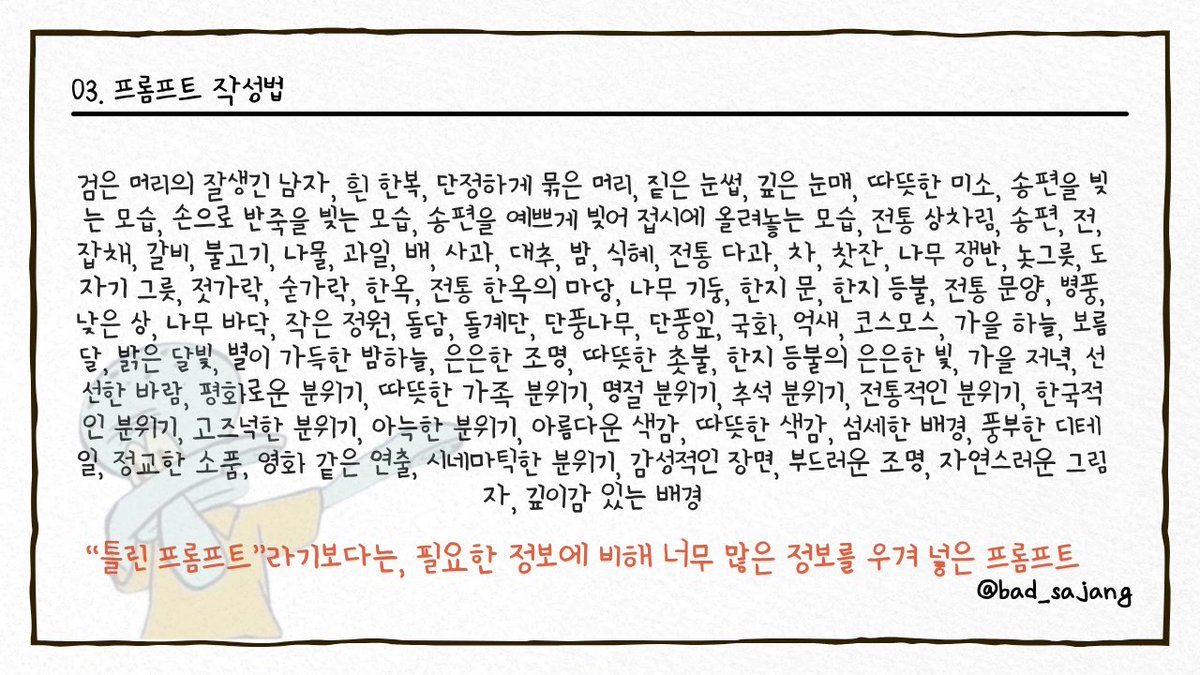 03. 프롬프트 작성법
검은 머리의 잘생긴 남자, 흰 한복, 단정하게 묶은 머리, 짙은 눈썹, 깊은 눈매, 따뜻한 미소, 송편을 빚
는 모습, 손으로 반죽을 빚는 모습, 송편을 예쁘게 빚어 접시에 올려놓는 모습, 전통 상차림, 송편, 전,
잡채, 갈비, 불고기, 나물, 과일, 배, 사과, 대추, 밤, 식혜, 전통 다과, 차, 찻잔, 나무 쟁반, 놋그릇, 도
자기 그릇, 젓가락, 숟가락, 한옥, 전통 한옥의 마당, 나무 기둥, 한지 문, 한지 등불, 전통 문양, 병풍,
낮은 상, 나무 바닥, 작은 정원, 돌담, 돌계단, 단풍나무, 단풍잎, 국화, 억새, 코스모스, 가을 하늘, 보름
달, 밝은 달빛, 별이 가득한 밤하늘, 은은한 조명, 따뜻한 촛불, 한지 등불의 은은한 빛, 가을 저녁, 선
선한 바람, 평화로운 분위기, 따뜻한 가족 분위기, 명절 분위기, 추석 분위기, 전통적인 분위기, 한국적
인 분위기, 고즈넉한 분위기, 아늑한 분위기, 아름다운 색감, 따뜻한 색감, 섬세한 배경, 풍부한 디테
일, 정교한 소품, 영화 같은 연출, 시네마틱한 분위기, 감성적인 장면, 부드러운 조명, 자연스러운 그림
자, 깊이감 있는 배경
“틀린 프롬프트”라기보다는, 필요한 정보에 비해 너무 많은 정보를 우겨 넣은 프롬프트
@bad_sajang